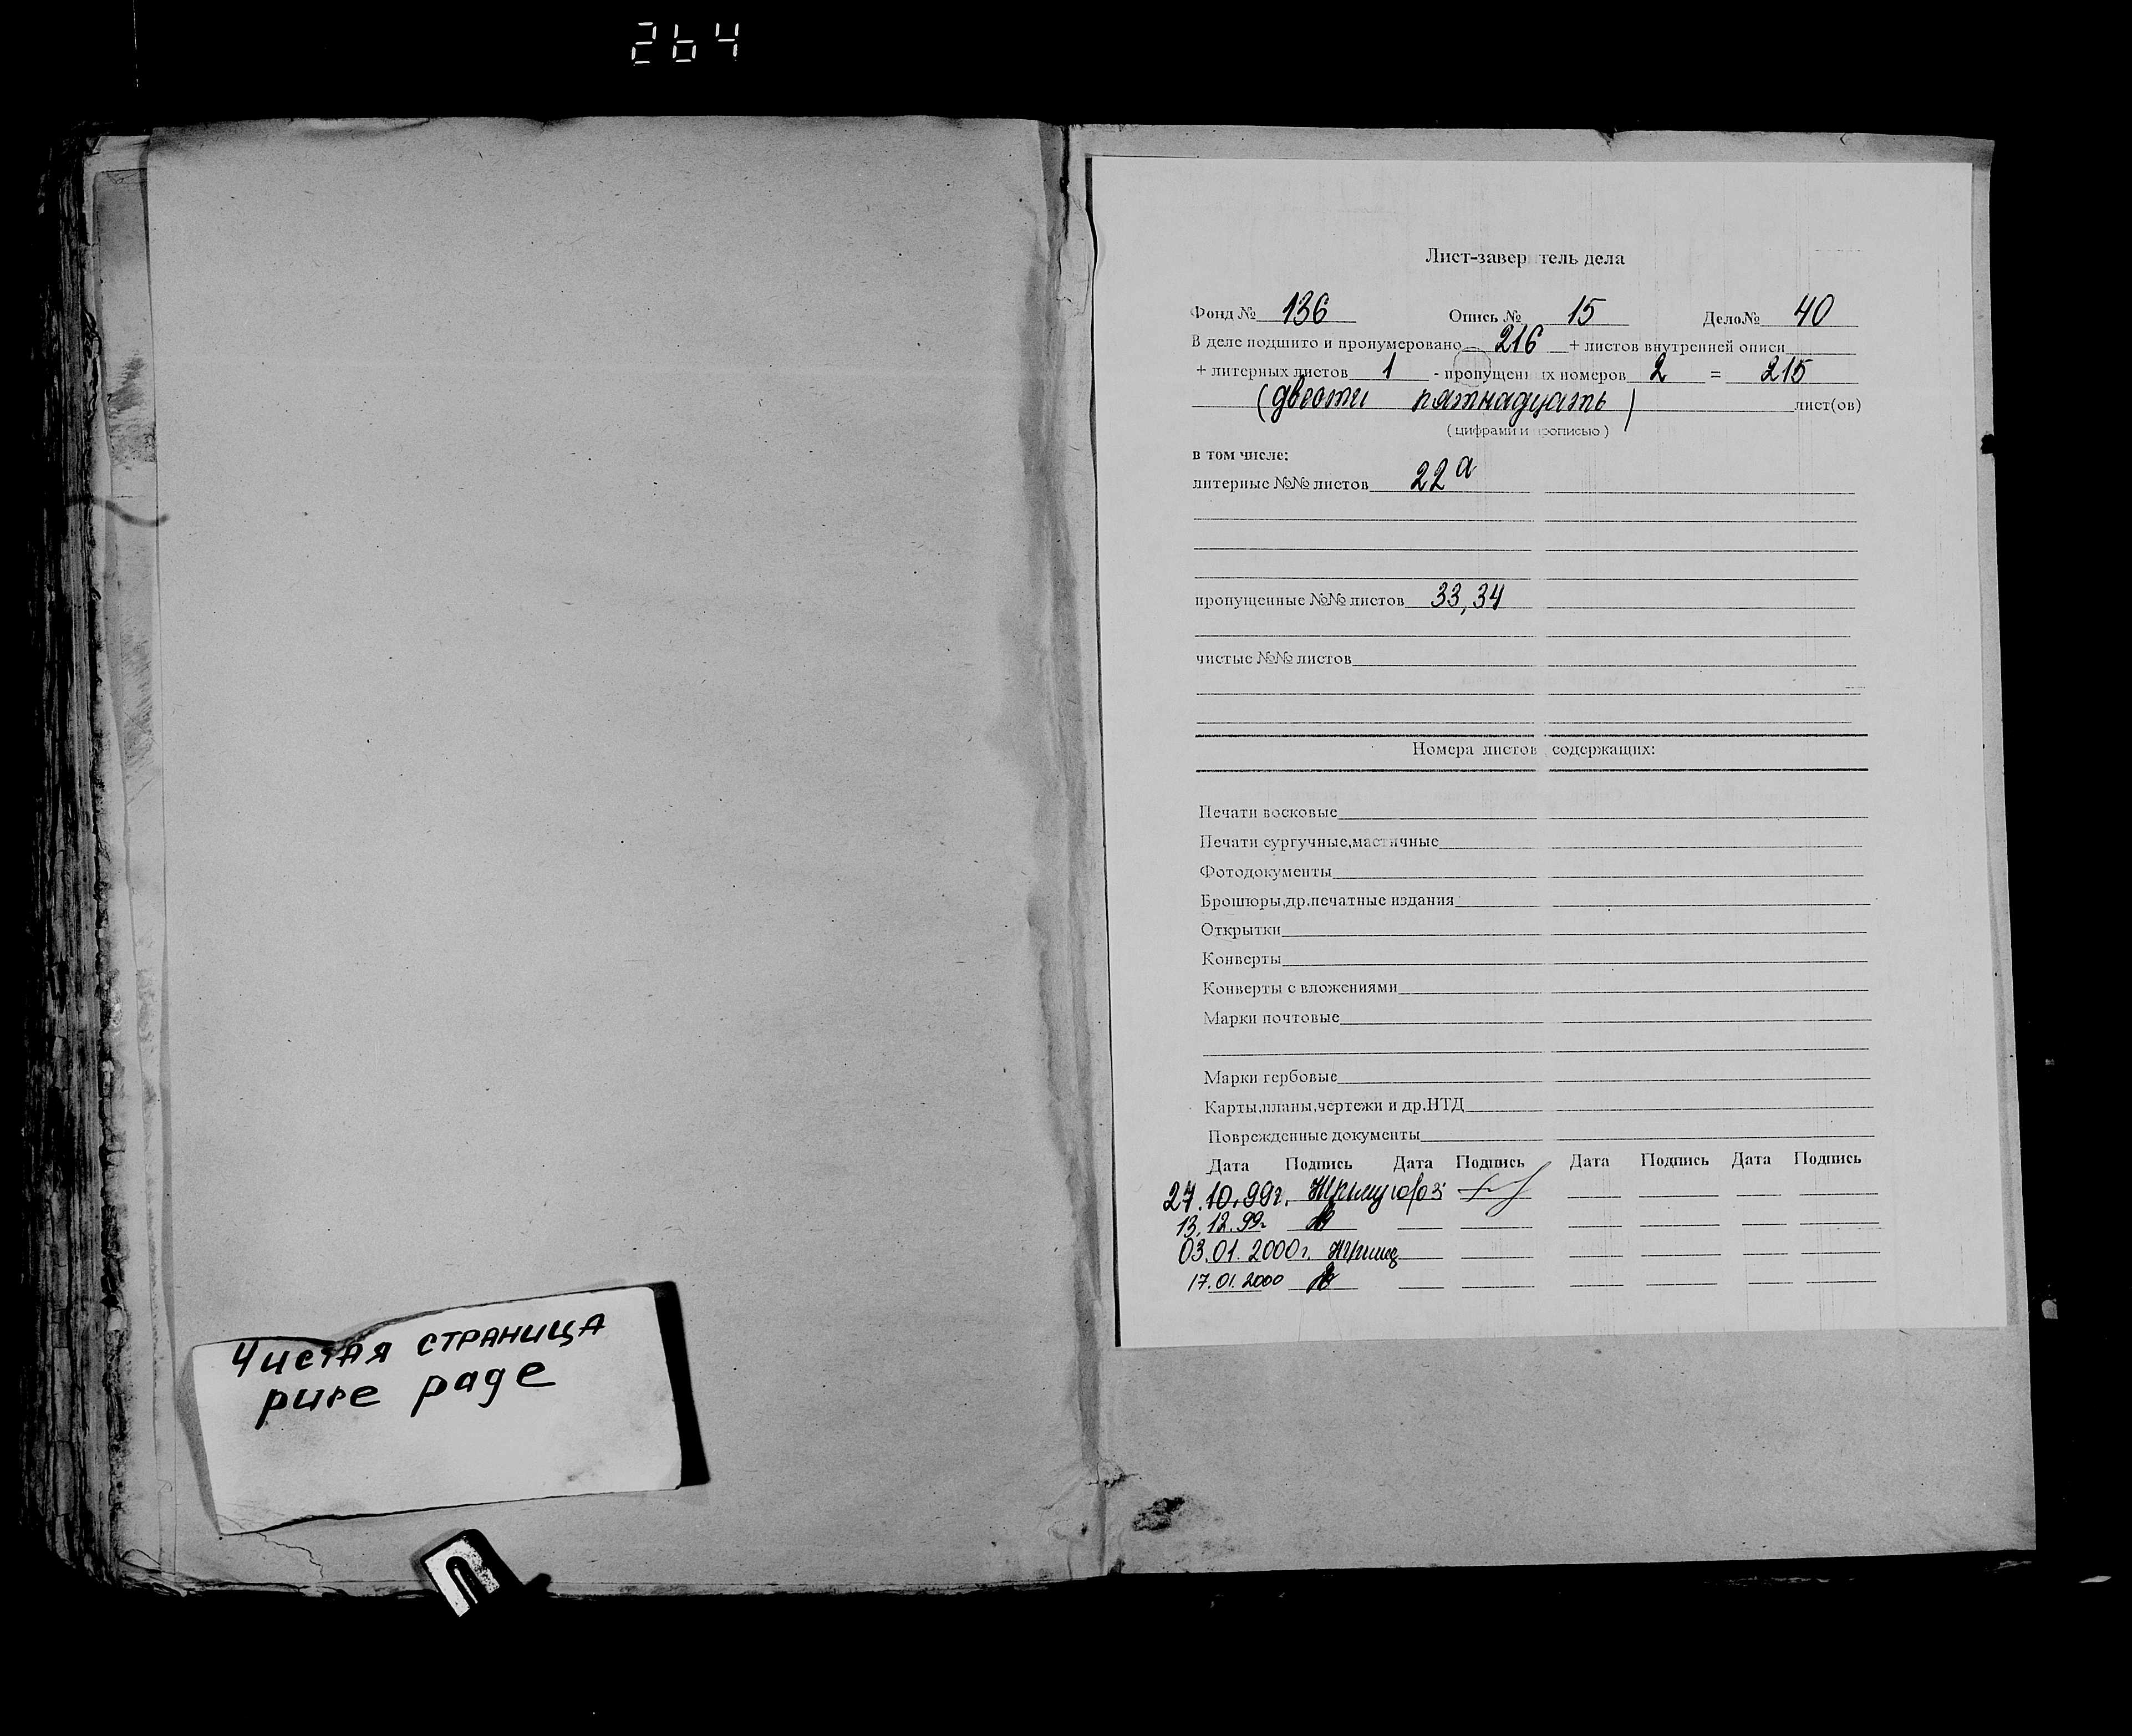 264
Чистая страница
pure page
Лист-заверитель дела
Фонд № 136 Опись № 15 Дело№ 40
В деле подшито и пронумеровано 216 + листов внутренней описи
+ литерных листов 1 - пропущенных номеров 2 = 215
(двести пятнадцать) лист(ов)
(цифрами и прописью)
в том числе:
литерные №№ листов 22а
пропущенные №№ листов 33, 34
чистые №№ листов
Номера листов содержащих:
Печати восковые
Печати сургучные,мастичные
Фотодокументы
Брошюры,др.печатные издания
Открытки
Конверты
Конверты с вложениями
Марки почтовые
Марки гербовые
Карты,планы,чертежи и др.НТД
Поврежденные документы
Дата Подпись Дата Подпись Дата Подпись Дата Подпись
27.10.99г.
13.12.99г
03.01.2000г.
17.01.2000